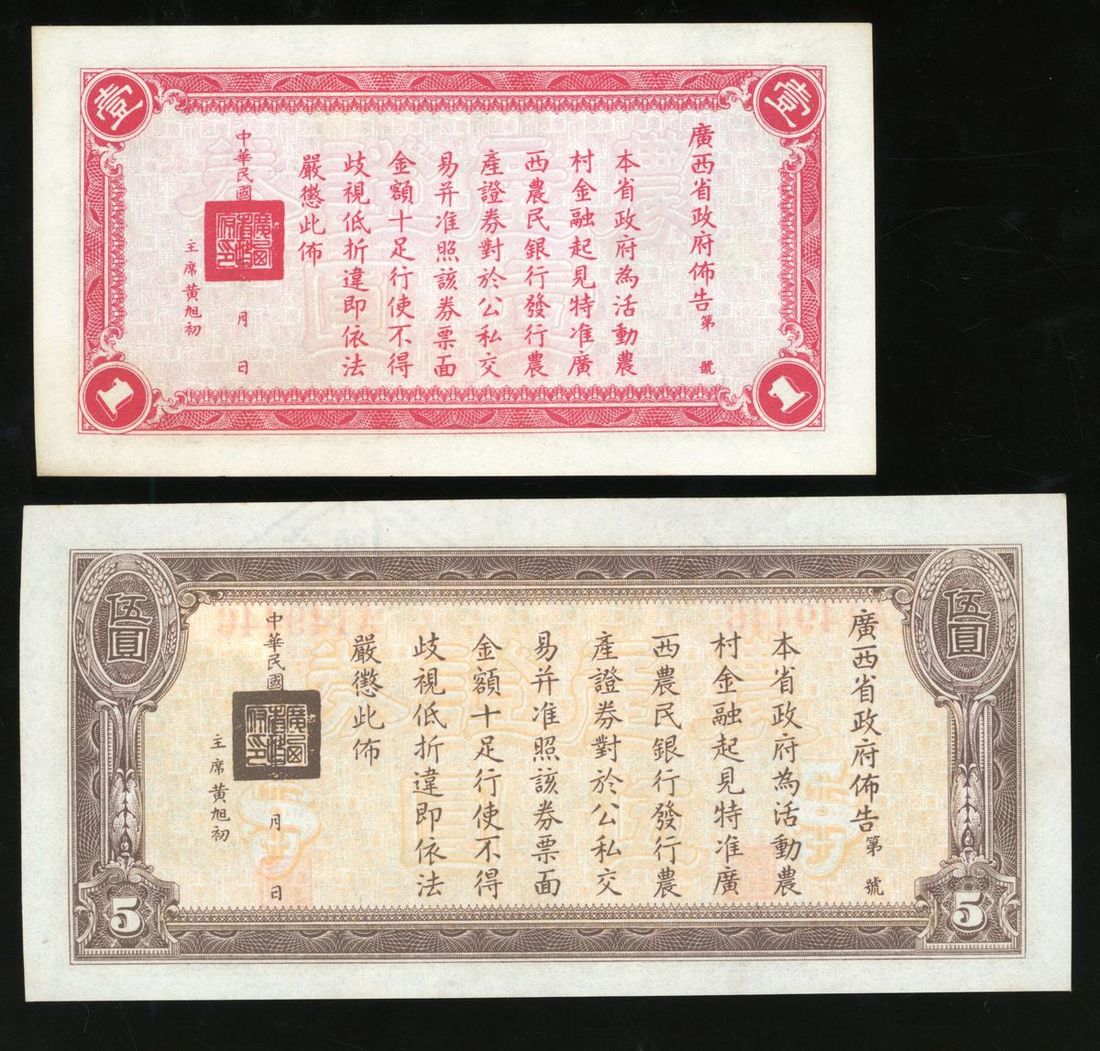 壹
壹
廣西省政府佈告第 號
本省政府為活動農
村金融起見特准廣
西農民銀行發行農
產證券對於公私交
易并准照該券票面
金額十足行使不得
歧視低折違即依法
嚴懲此佈
中華民國 月 日
廣西省政府印
主席黃旭初
1
1
伍圓
伍圓
廣西省政府佈告第 號
本省政府為活動農
村金融起見特准廣
西農民銀行發行農
產證券對於公私交
易并准照該券票面
金額十足行使不得
歧視低折違即依法
嚴懲此佈
中華民國 月 日
廣西省政府印
主席黃旭初
5
5